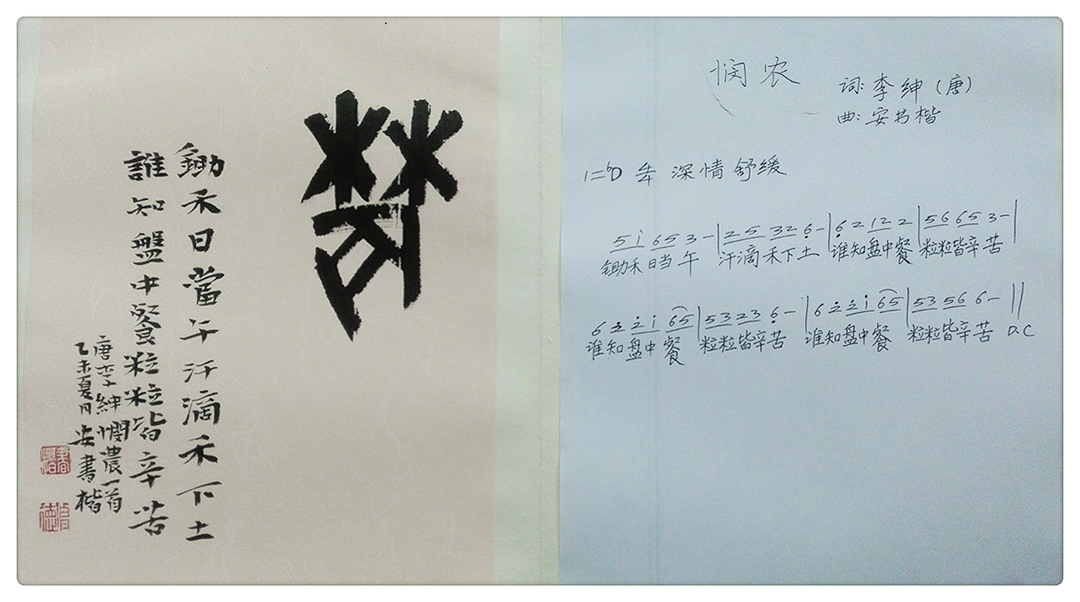 鋤禾日當午汗滴禾下土
誰知盤中餐粒粒皆辛苦
唐李紳憫農一首
乙未夏月安書楷
悯农
词:李绅(唐)
曲:安书楷
1=♭D 深情舒缓
5 i 6 5 3 - | 2 5 3 2 6̣ - | 6̣ 2 1 2 2 | 5 6 6 5 3 - |
鋤禾日当午 汗滴禾下土 谁知盘中餐 粒粒皆辛苦
6 2̇ 2̇ i 6 5 | 5 3 2 3 6̣ - | 6 2̇ 2̇ i 6 5 | 5 3 5 6 6 - || D.C
谁知盘中餐 粒粒皆辛苦 谁知盘中餐 粒粒皆辛苦